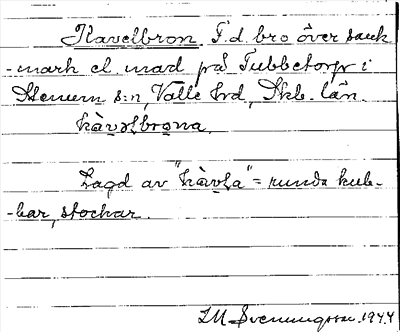 Kavelbron. F.d. bro över sank-
-mark el. mad på Tubbetorp i
Stenum s:n, Valle hd, Skb. län.
kàvəɫbrona.
Lagd av "kàvɫa" = runda kub-
-bar, stockar.
LM Svenungsson. 1944